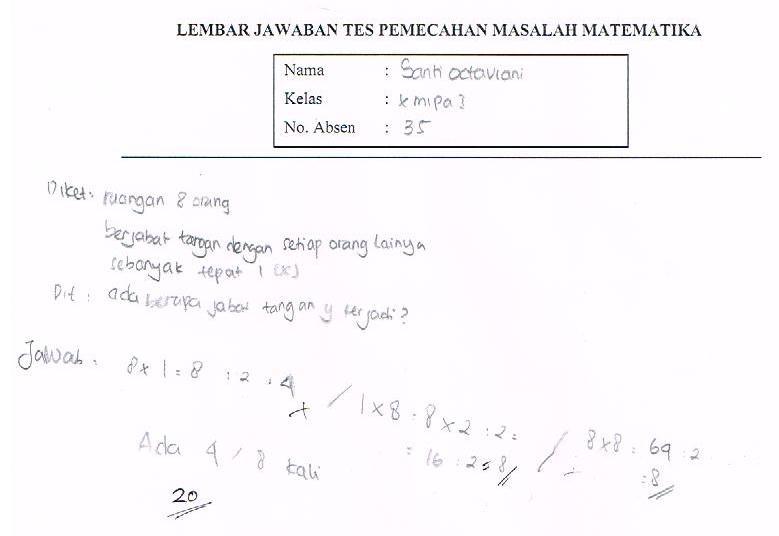 LEMBAR JAWABAN TES PEMECAHAN MASALAH MATEMATIKA
Nama : Santi octaviani
Kelas : X mipa 3
No. Absen : 35
Diket : ruangan 8 orang
berjabat tangan dengan setiap orang lainya
sebanyak tepat 1 (x)
Dit : ada berapa jabat tangan y terjadi?
Jawab : 8 x 1 = 8 : 2 = 4 / 1 x 8 = 8 x 2 : 2 = / 8 x 8 = 64 : 2
= 16 : 2 = 8 = 8
Ada 4 / 8 kali
20